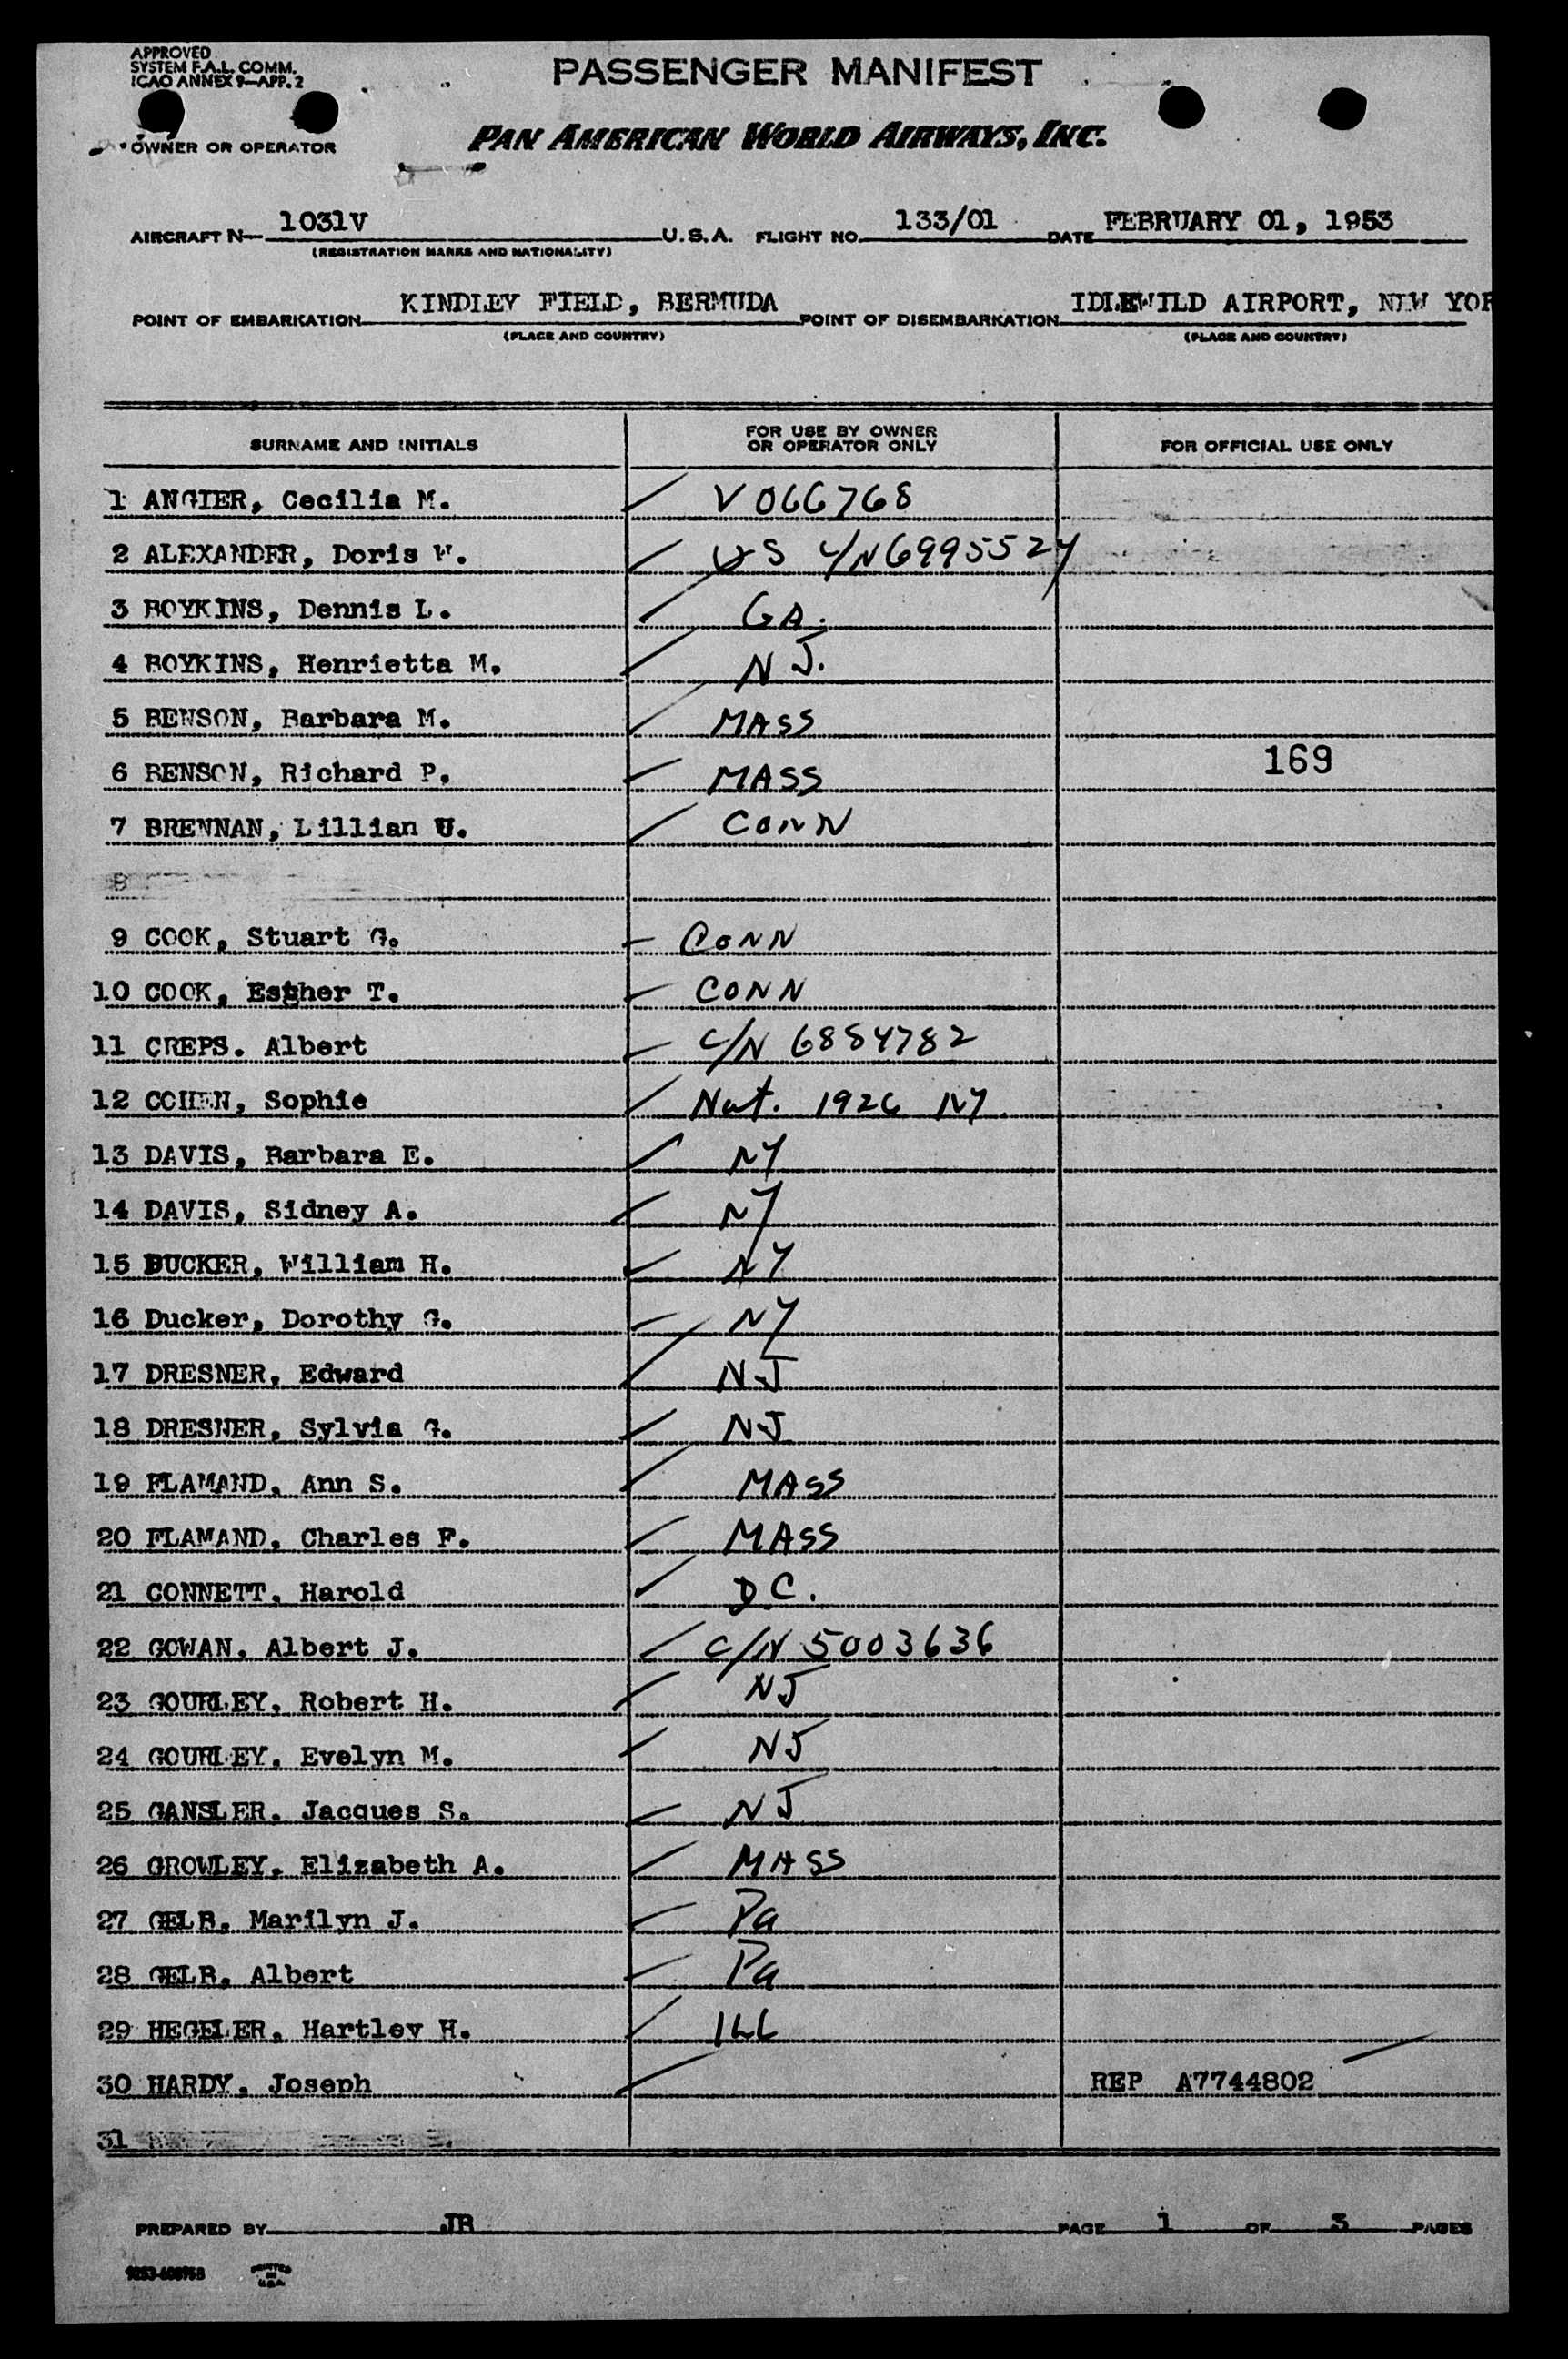 APPROVED
SYSTEM F.A.L. COMM.
ICAO ANNEX 9—APP. 2
PASSENGER MANIFEST
OWNER OR OPERATOR
PAN AMERICAN WORLD AIRWAYS, INC.
AIRCRAFT N— 1031V U.S.A. FLIGHT NO. 133/01 DATE FEBRUARY 01, 1953
(REGISTRATION MARKS AND NATIONALITY)
POINT OF EMBARKATION KINDLEY FIELD, BERMUDA POINT OF DISEMBARKATION IDLEWILD AIRPORT, NEW YOR
(PLACE AND COUNTRY) (PLACE AND COUNTRY)
SURNAME AND INITIALS FOR USE BY OWNER OR OPERATOR ONLY FOR OFFICIAL USE ONLY
1 ANGIER, Cecilia M. V066768
2 ALEXANDER, Doris W. US C/N 6995524
3 BOYKINS, Dennis L. GA.
4 BOYKINS, Henrietta M. NJ.
5 BENSON, Barbara M. MASS
6 BENSON, Richard P. MASS 169
7 BRENNAN, Lillian U. CONN
8
9 COOK, Stuart G. CONN
10 COOK, Esther T. CONN
11 CREPS. Albert C/N 6884782
12 COHEN, Sophie Nat. 1926 NY.
13 DAVIS, Barbara E. NY
14 DAVIS, Sidney A. NY
15 DUCKER, William H. NY
16 Ducker, Dorothy G. NY
17 DRESNER, Edward NJ
18 DRESNER, Sylvia G. NJ
19 FLAMAND, Ann S. MASS
20 FLAMAND, Charles F. MASS
21 CONNETT, Harold D.C.
22 GOWAN, Albert J. C/N 5003636
23 GOURLEY, Robert H. NJ
24 GOURLEY, Evelyn M. NJ
25 GANSLER. Jacques S. NJ
26 GROWLEY, Elizabeth A. MASS
27 GELB, Marilyn J. Pa
28 GELB, Albert Pa
29 HEGELER, Hartley H. ILL
30 HARDY, Joseph REP A7744802
31
PREPARED BY JB PAGE 1 OF 3 PAGES
PRINTED IN U.S.A.